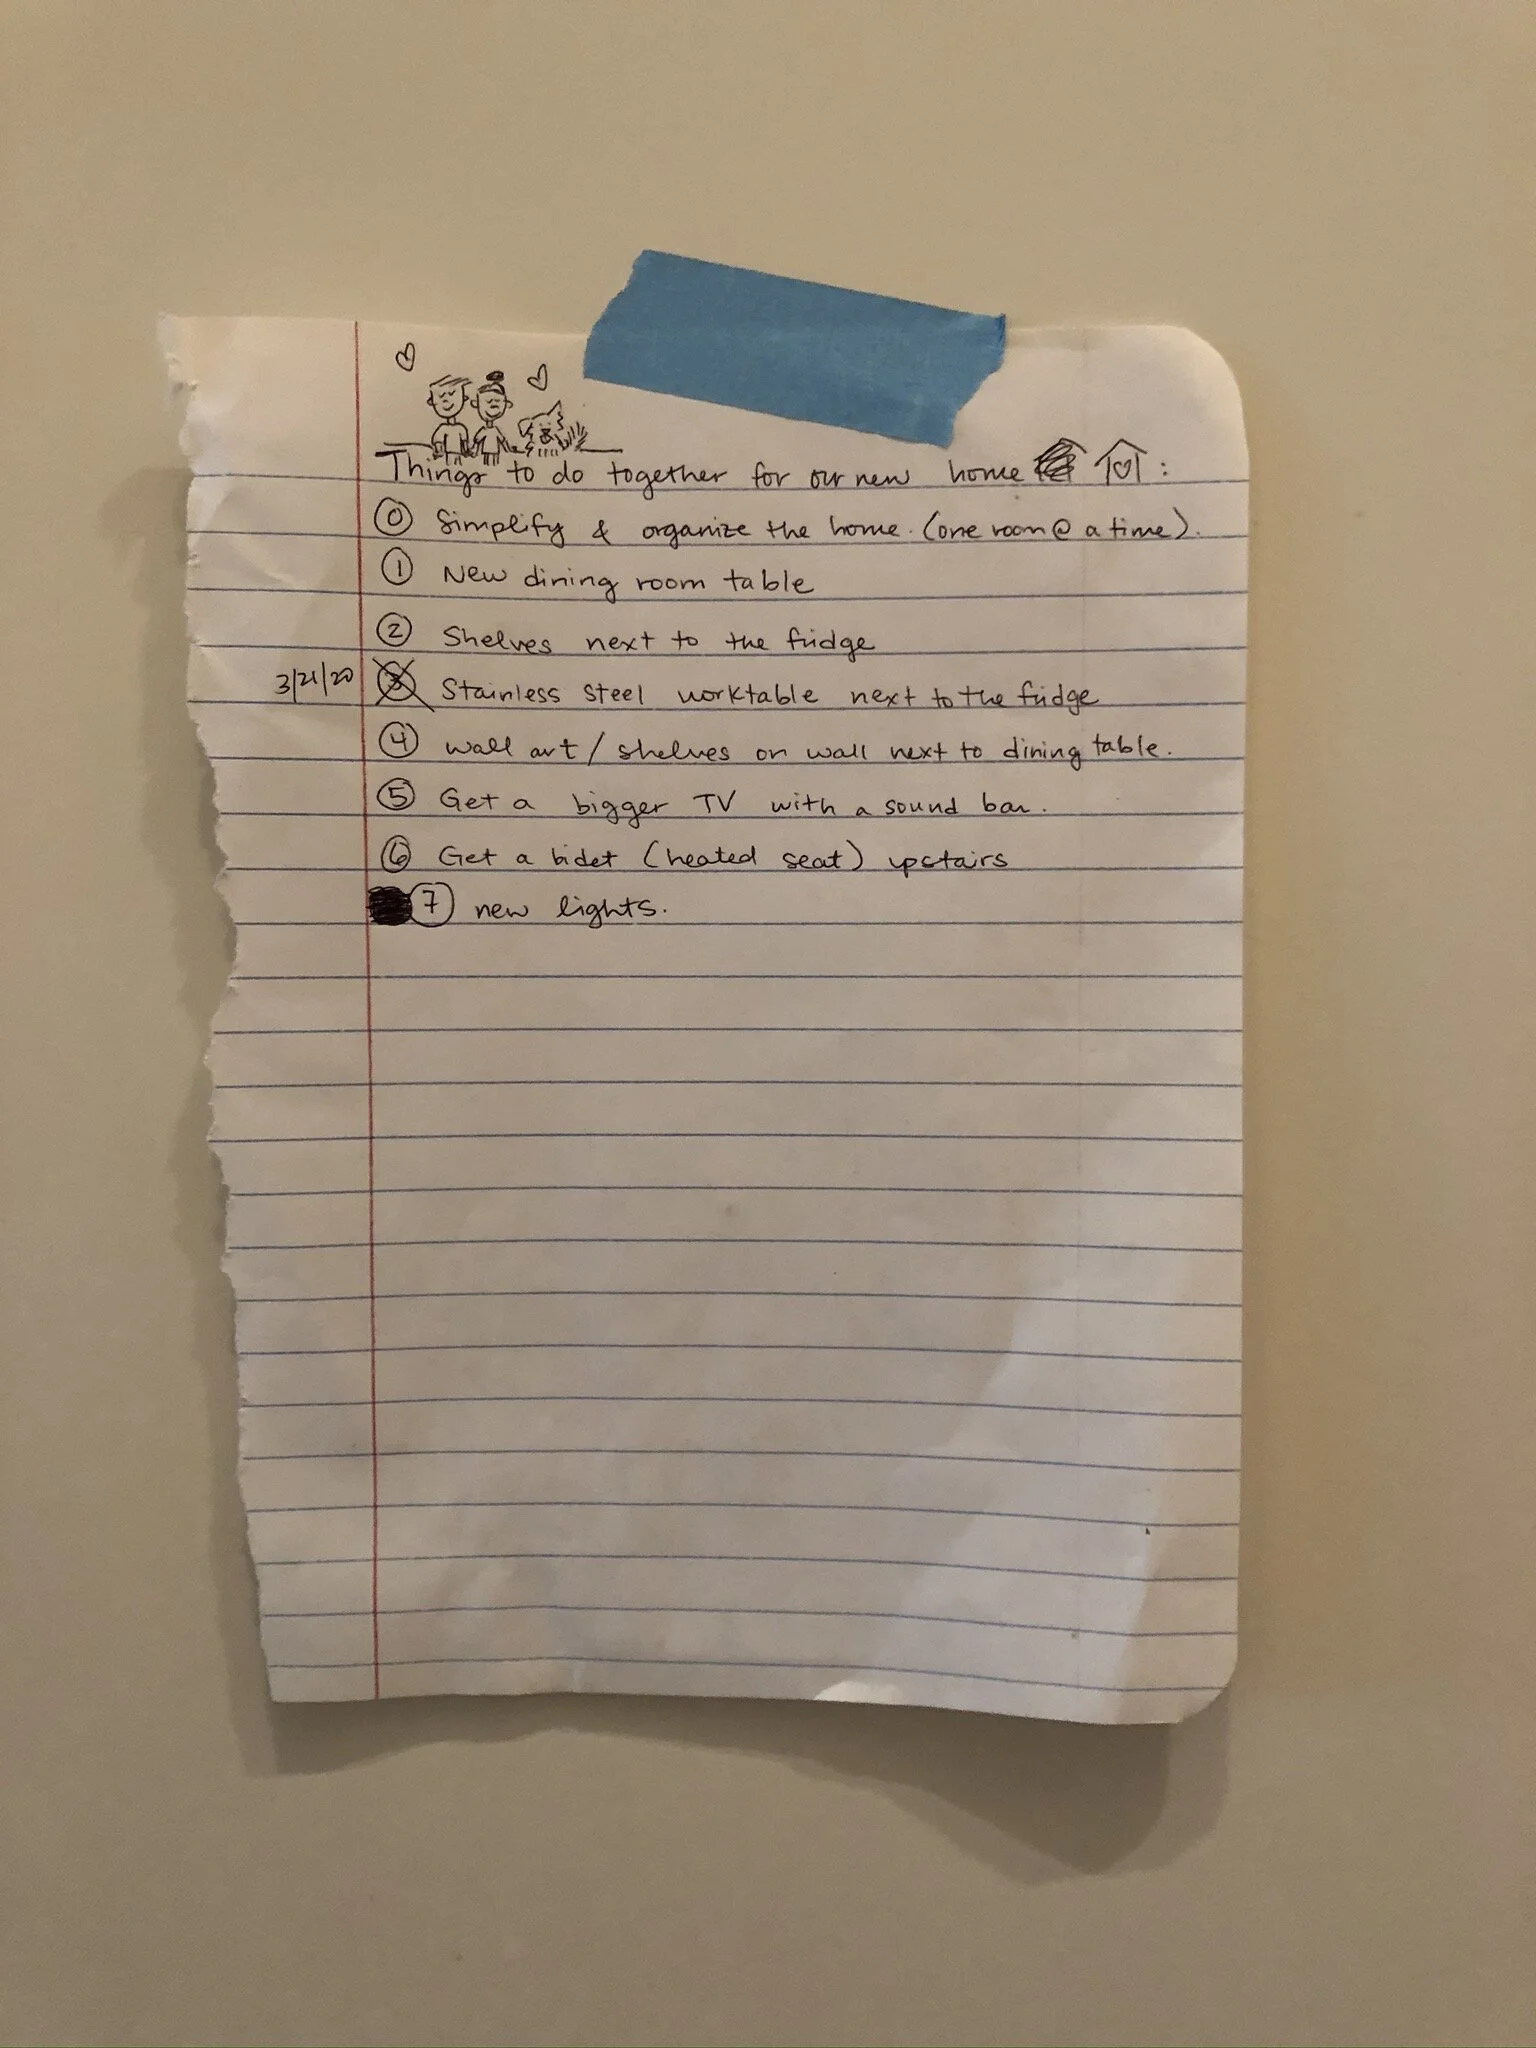 Things to do together for our new home :
0 Simplify & organize the home. (one room @ a time).
1 New dining room table
2 Shelves next to the fridge
3/21/20 3 Stainless steel worktable next to the fridge
4 wall art / shelves on wall next to dining table.
5 Get a bigger TV with a sound bar.
6 Get a bidet (heated seat) upstairs
7 new lights.